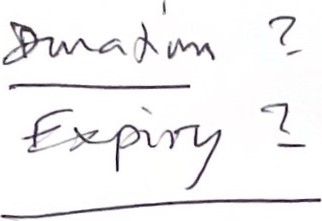 Duration ?
Expiry ?